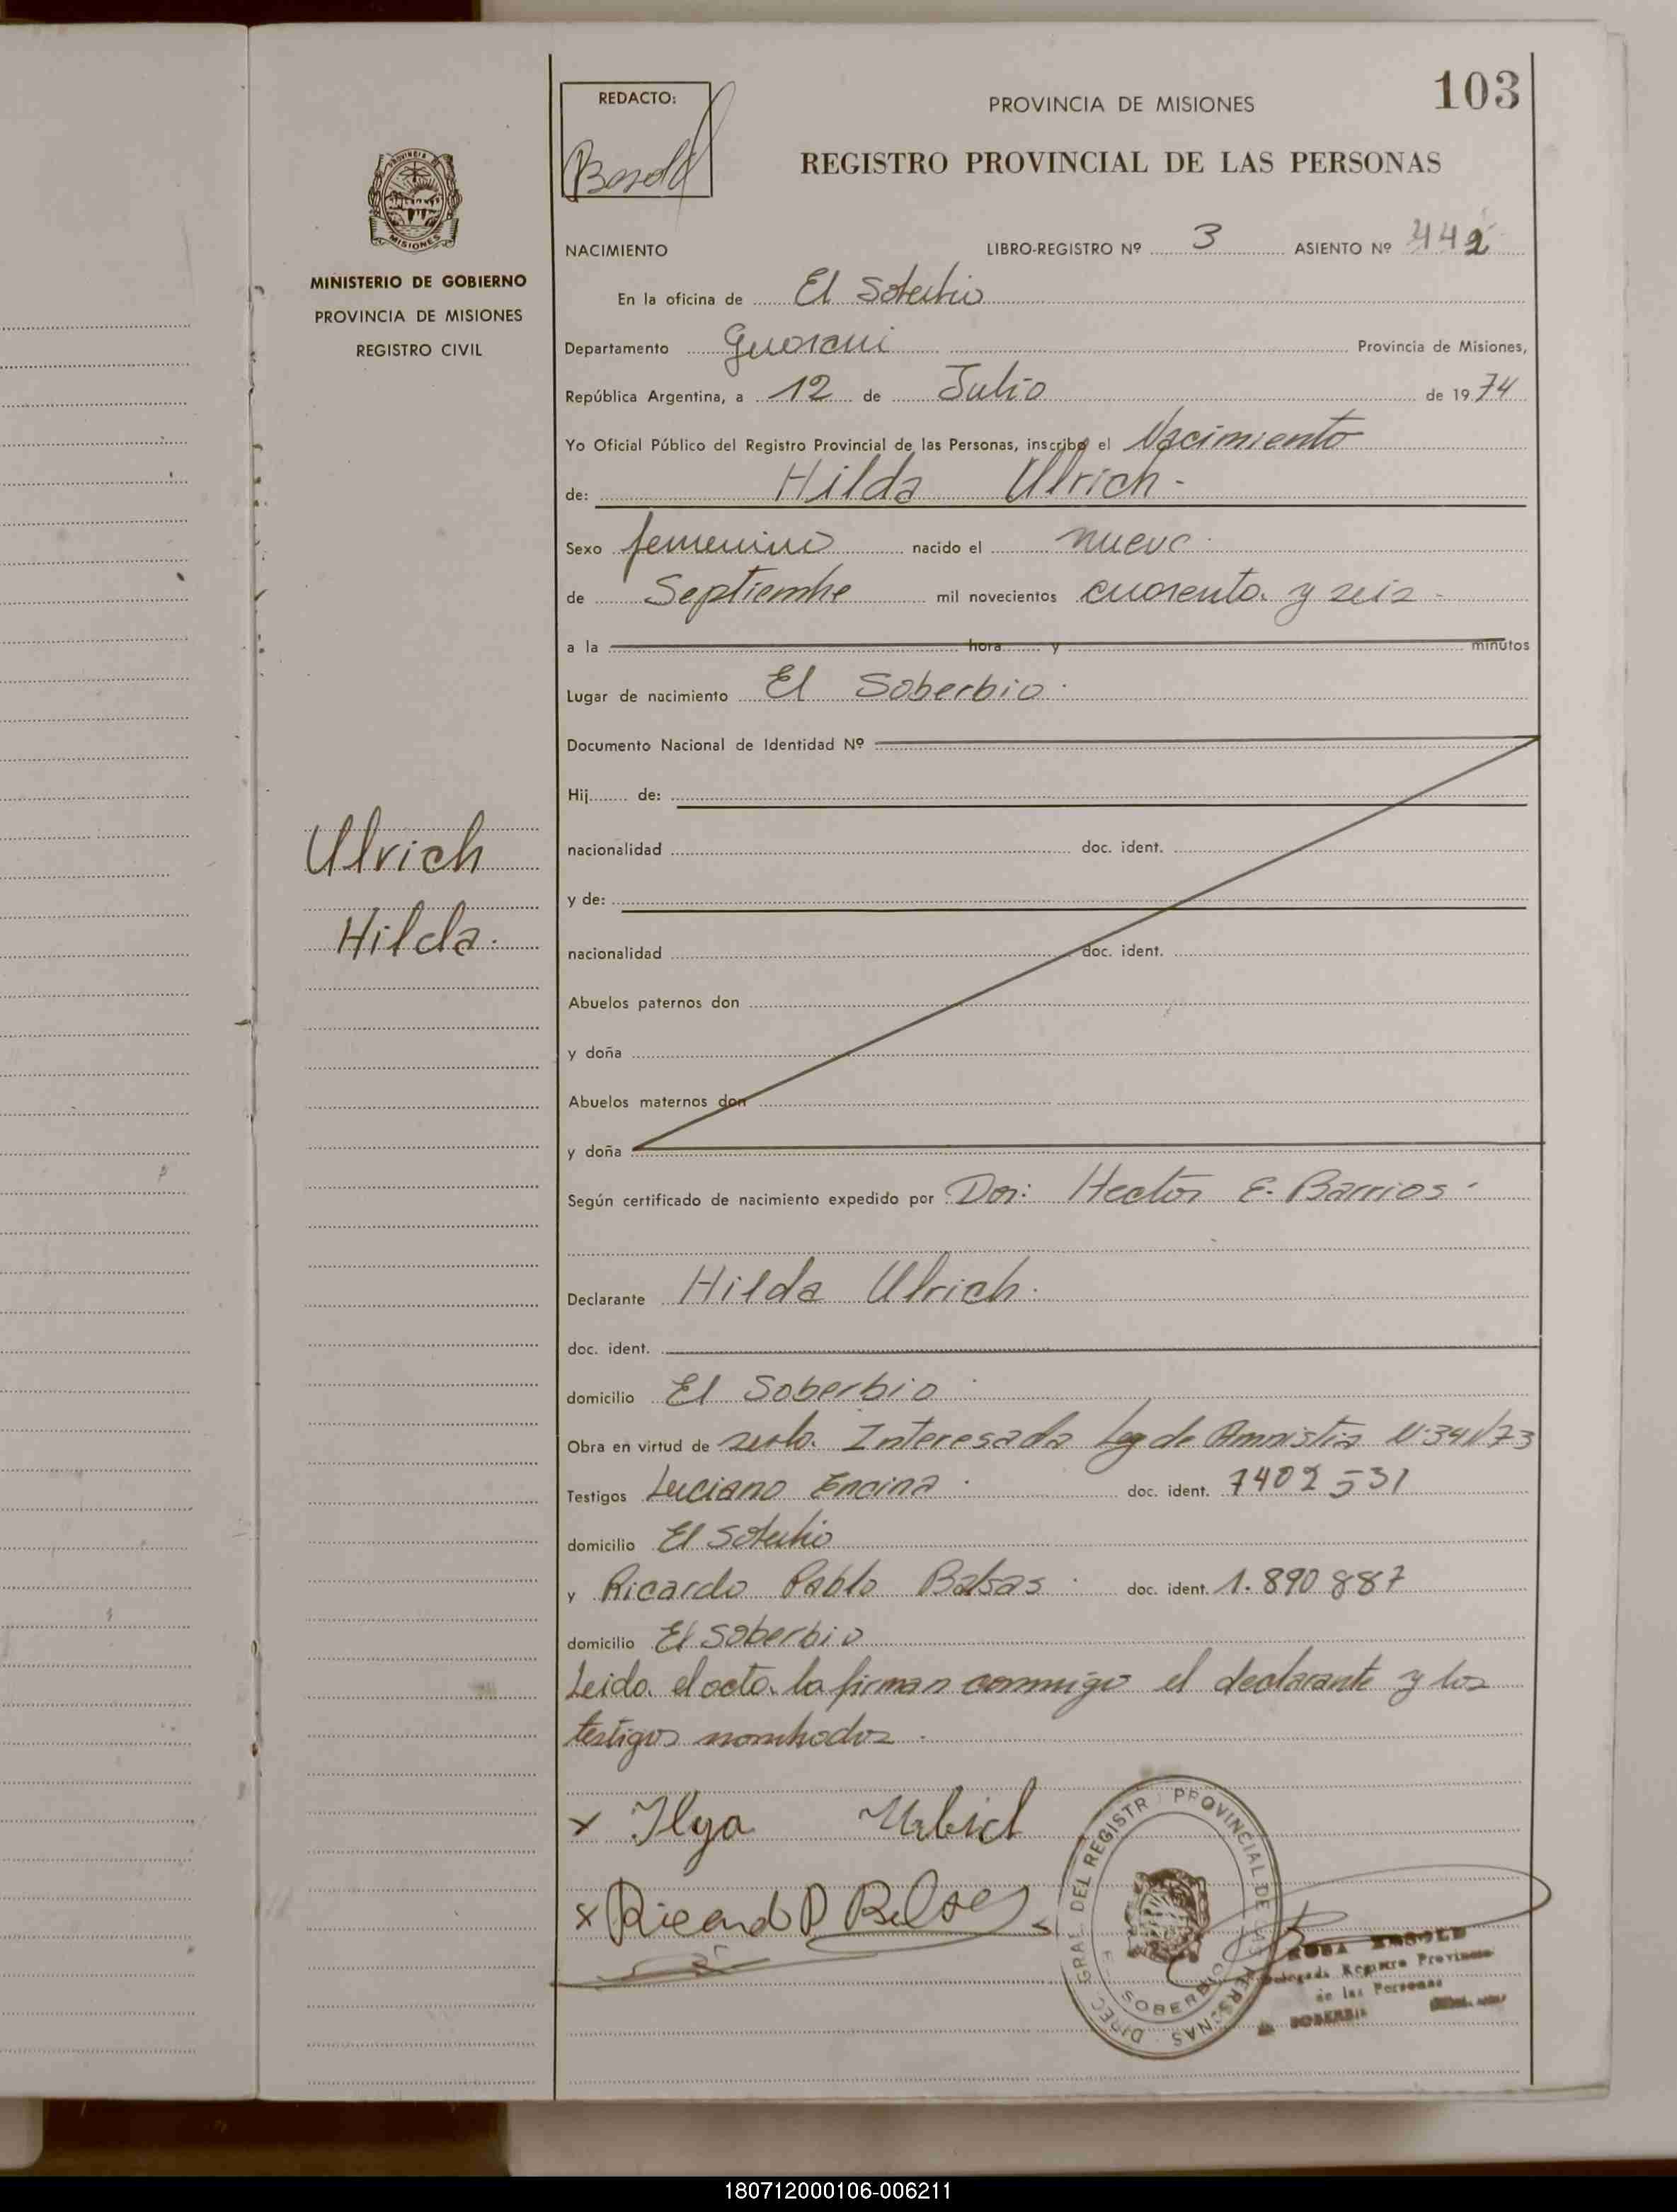 103
REDACTO:
PROVINCIA DE MISIONES
REGISTRO PROVINCIAL DE LAS PERSONAS
NACIMIENTO LIBRO-REGISTRO Nº 3 ASIENTO Nº 442
PROVINCIA DE
MISIONES
MINISTERIO DE GOBIERNO
PROVINCIA DE MISIONES
REGISTRO CIVIL
En la oficina de El Soberbio
Departamento Guarani Provincia de Misiones,
República Argentina, a 12 de Julio de 1974
Yo Oficial Público del Registro Provincial de las Personas, inscribo el Nacimiento
de: Hilda Ulrich -
Sexo femenino nacido el nueve
de Septiembre mil novecientos cuarenta y seis -
a la hora y minutos
Lugar de nacimiento El Soberbio
Documento Nacional de Identidad Nº
Hij de:
nacionalidad doc. ident.
y de:
nacionalidad doc. ident.
Abuelos paternos don
y doña
Abuelos maternos don
y doña
Ulrich
Hilda.
Según certificado de nacimiento expedido por Dor: Hector E. Barrios
Declarante Hilda Ulrich.
doc. ident.
domicilio El Soberbio
Obra en virtud de ser la Interesada Ley de Amnistia Nº 341/73
Testigos Luciano Encina doc. ident. 7402531
domicilio El Soberbio
y Ricardo Pablo Balsas doc. ident. 1.890.887
domicilio El Soberbio
Leida el acta la firman conmigo el declarante y los
testigos nombrados
x Ilga Urbich
x Ricardo P Balsas
DIREC. GRAL. DEL REGISTR PROVINCIAL DE LAS PERSONAS
SOBERBIO
ROSA
Delegada Registro Provincial
de las Personas
SOBERBIO
180712000106-006211